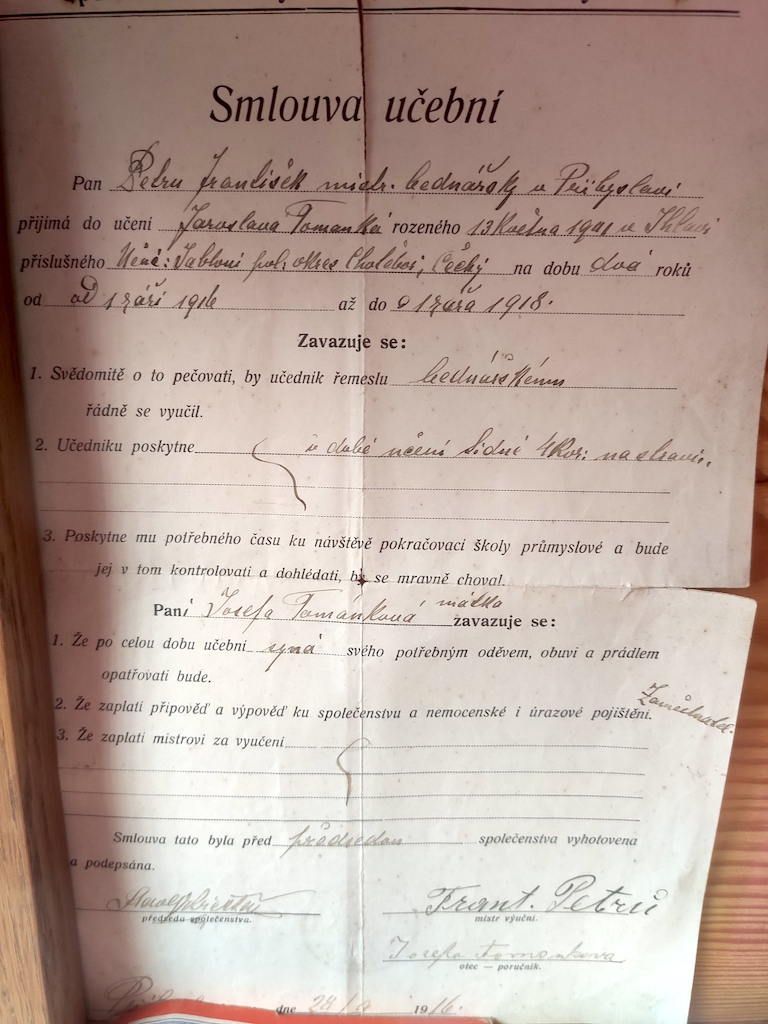 Smlouva učební
Pan Petru František mistr. bednářský v Přibyslavi
přijímá do učení Jaroslava Tomanka rozeného 13 Května 1901 v Jhlavi
příslušného Něm: Jabloni pol. okres Chotěboř, Čechy na dobu dvá roků
od od 1 září 1916 až do 1 září 1918.
Zavazuje se:
1. Svědomitě o to pečovati, by učedník řemeslu bednářskému
řádně se vyučil.
2. Učedníku poskytne v době učení 4 Kor: na stravu.
3. Poskytne mu potřebného času ku návštěvě pokračovací školy průmyslové a bude
jej v tom kontrolovati a dohlédati, by se mravně choval.
Paní Josefa Tománková matka zavazuje se:
1. Že po celou dobu učební syna svého potřebným oděvem, obuví a prádlem
opatřovati bude.
2. Že zaplatí připověď a výpověď ku společenstvu a nemocenské i úrazové pojištění. Zaměstnavatel.
3. Že zaplatí mistrovi za vyučení
Smlouva tato byla před předsedou společenstva vyhotovena
a podepsána.
Frant. Petrů
předseda společenstva. mistr výuční.
Josefa Tomankova
otec — poručník.
dne 1916.